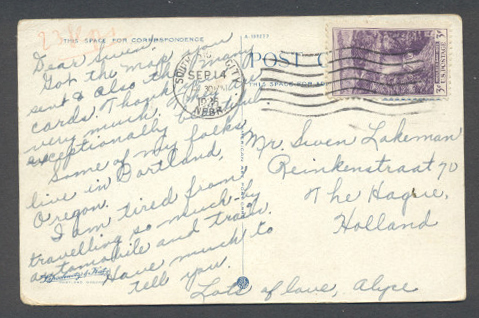 THIS SPACE FOR CORRESPONDENCE
Dear Swen,
Got the map you
sent & also the many
cards. Thank you
very much.
exceptionally beautiful
Some of my folks
live in Portland,
Oregon.
I am tired from
travelling so much by
automobile and train.
Have much to
tell you.
Lots of love, Alyce
POST C
THIS SPACE FOR
SIOUX CITY
SEP 14
NEBR.
3¢
U.S. POSTAGE
Mr. Swen Lakeman
Reinkenstraat 70
The Hague,
Holland